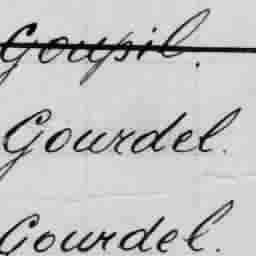 Goupil.
Gourdel.
Gourdel.